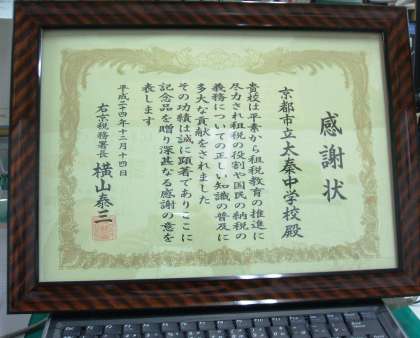 感謝状
京都市立太秦中学校殿
貴校は平素から租税教育の推進に
尽力され租税の役割や国民の納税の
義務についての正しい知識の普及に
多大な貢献をされました
その功績は誠に顕著でありここに
記念品を贈り深甚なる感謝の意を
表します
平成二十四年十二月十四日
右京税務署長 横山泰三